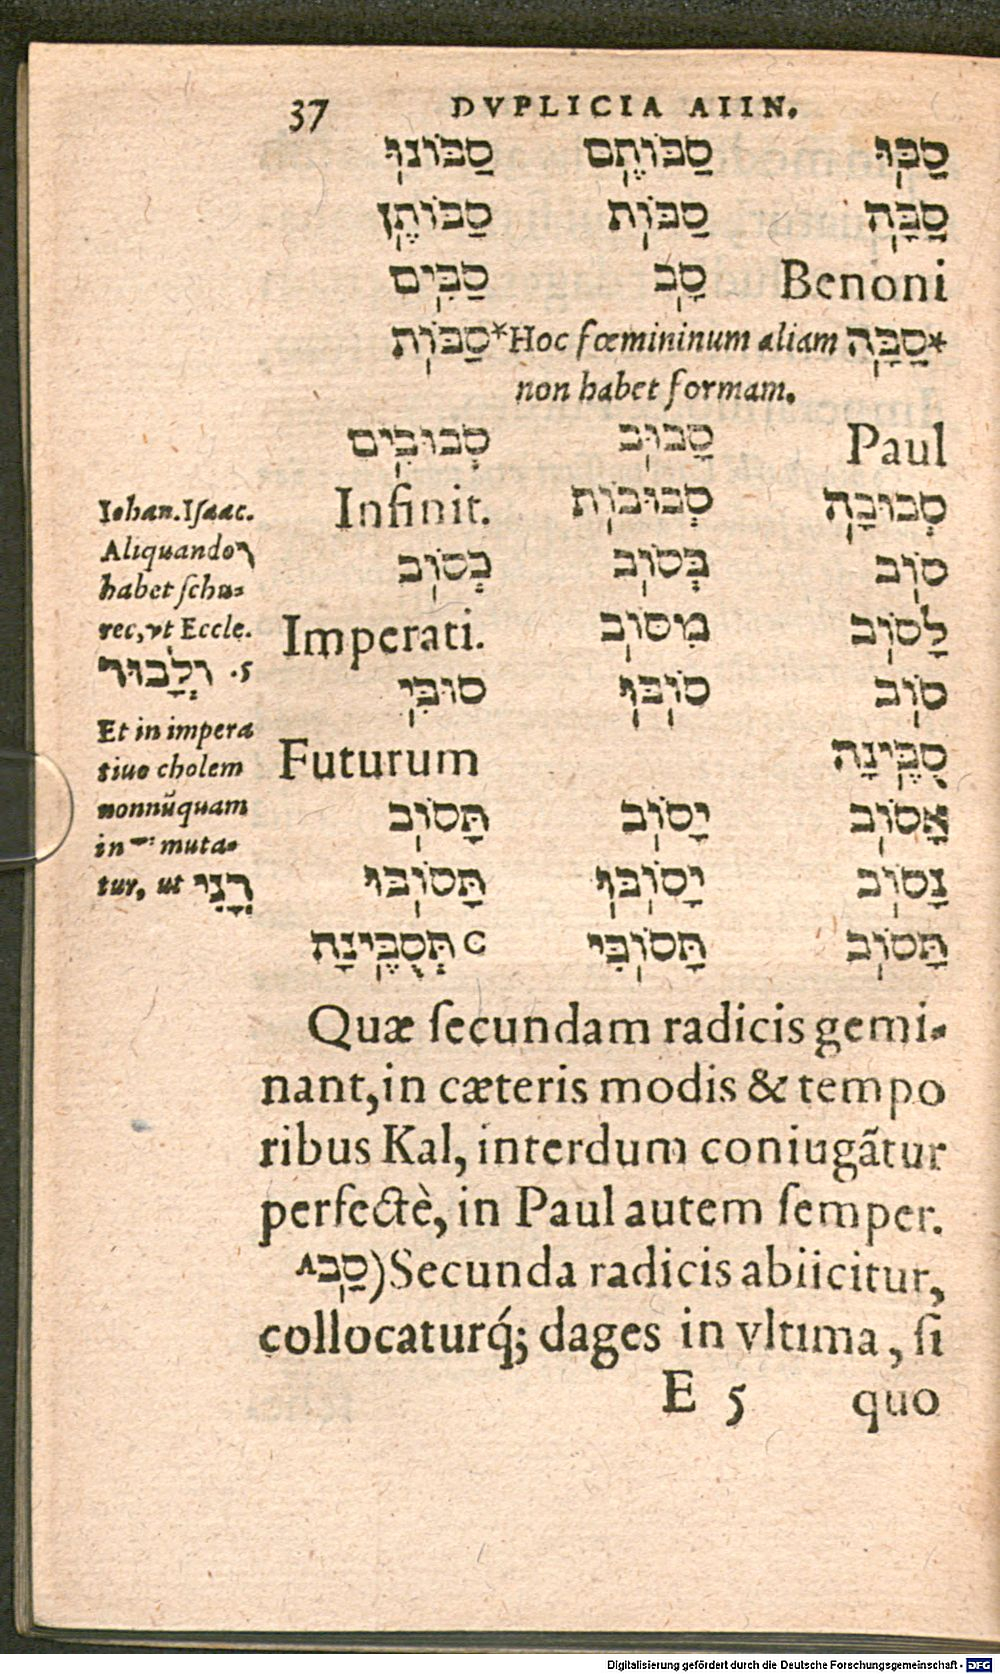 37 DVPLICIA AIIN.
סַבּוּ סַבּוֹתֶם סַבּוֹנוּ
סַבָּה סַבּוֹת סַבּוֹתֶן
Benoni סָב סַבִּים
*סַבָּה *Hoc fœmininum aliam סַבּוֹת
non habet formam.
Paul סָבוּב סְבוּבִים
סְבוּבָה סְבוּבוֹת Infinit.
סוֹב בְּסוֹב כְּסוֹב
לָסוֹב מִסּוֹב Imperati.
סוֹב סוֹבּוּ סוּבִּי
סֻבֶּינָה Futurum
אָסוֹב יָסוֹב תָּסוֹב
נָסוֹב יָסוֹבּוּ תָּסוֹבּוּ
תָּסוֹב תָּסוֹבִּי C תְּסֻבֶּינָה
Iohan.Iſaac.
Aliquando ו
habet ſchu-
rec, vt Eccle.
5. וְלָבוּר
Et in impera
tiuo cholem
nonnũquam
in muta-
tur, ut רָנִּי
Quæ ſecundam radicis gemi-
nant, in cæteris modis & tempo
ribus Kal, interdum coniugãtur
perfectè, in Paul autem ſemper.
סַבA) Secunda radicis abiicitur,
collocaturq́; dages in vltima, ſi
E 5 quo
Digitalisierung gefördert durch die Deutsche Forschungsgemeinschaft - DFG